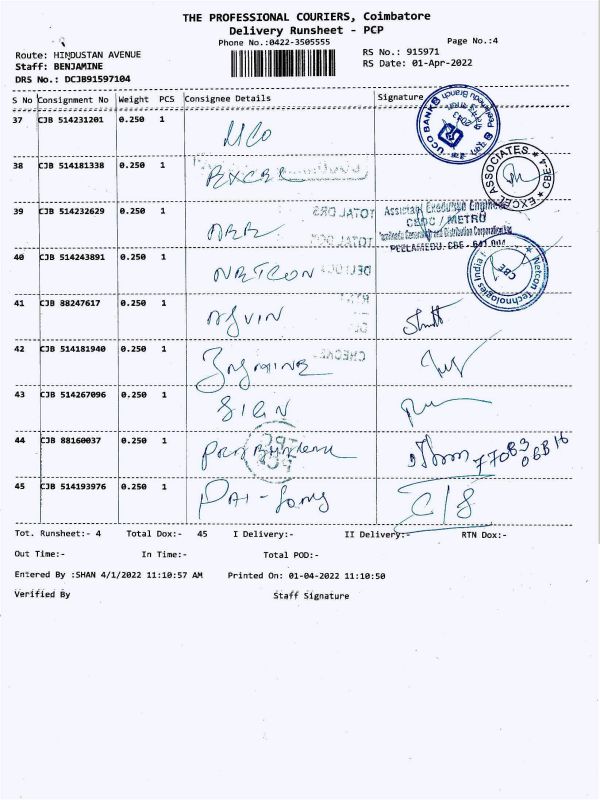 THE PROFESSIONAL COURIERS, Coimbatore
Delivery Runsheet - PCP
Phone No.:0422-3505555
Page No.:4
Route: HINDUSTAN AVENUE
RS No.: 915971
Staff: BENJAMINE
RS Date: 01-Apr-2022
DRS No.: DCJB91597104
S No Consignment No Weight PCS Consignee Details Signature
37 CJB 514231201 0.250 1 UCO
UCO BANK
38 CJB 514181338 0.250 1 EXCEL
EXCEL ASSOCIATES ★ CBE-4 ★
39 CJB 514232629 0.250 1
TOTAL DRS
Assistant Executive Engineer
CEDC / METRO
Tamilnadu Generation and Distribution Corporation Ltd
PEELAMEDU, CBE - 641 004
40 CJB 514243891 0.250 1 NETCON
Netcon Technologies India
CBE
41 CJB 88247617 0.250 1
42 CJB 514181940 0.250 1
CHECKED
43 CJB 514267096 0.250 1
44 CJB 88160037 0.250 1
45 CJB 514193976 0.250 1
C/S
Tot. Runsheet:- 4 Total Dox:- 45 I Delivery:- II Delivery:- RTN Dox:-
Out Time:- In Time:- Total POD:-
Entered By :SHAN 4/1/2022 11:10:57 AM Printed On: 01-04-2022 11:10:50
Verified By Staff Signature